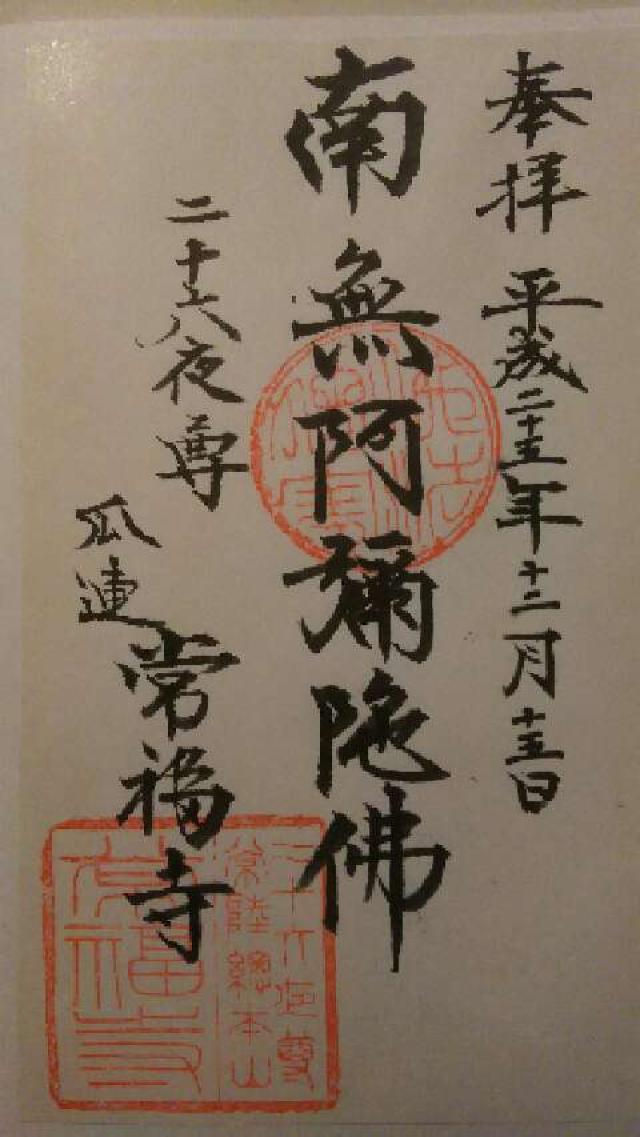 奉拝 平成二十五年十二月十五日
南無阿彌陀佛
二十六夜尊
瓜連 常福寺
二十六夜尊
常陸總本山
常福寺